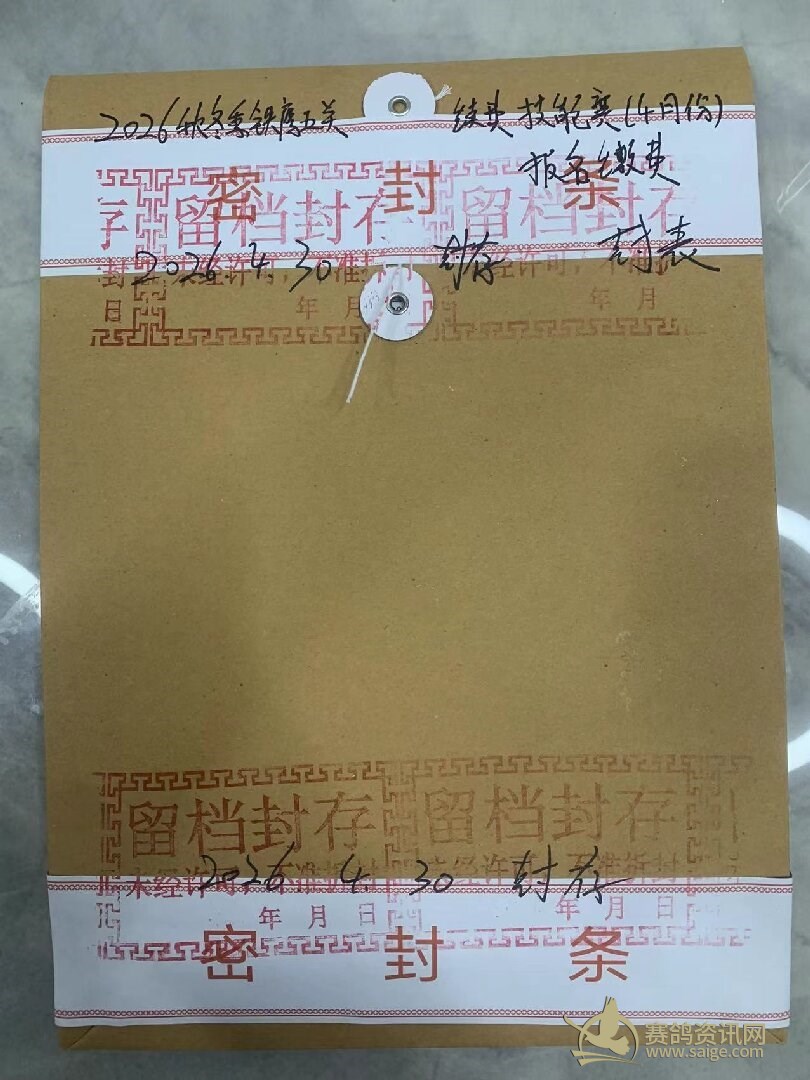 2026秋冬季铁鹰五关 续费 技能赛(4月份)
报名缴费
密 封 条
存 留档封存 留档封存
2026.4.30 封存
封 未经许可,不准拆 未经许可,不准拆
日 年 月 年 月
留档封存 留档封存
未经许可,不准拆封 未经许可,不准拆封
2026 4 30 封存
年 月 日 年 月 日
密 封 条
赛鸽资讯网
www.saige.com